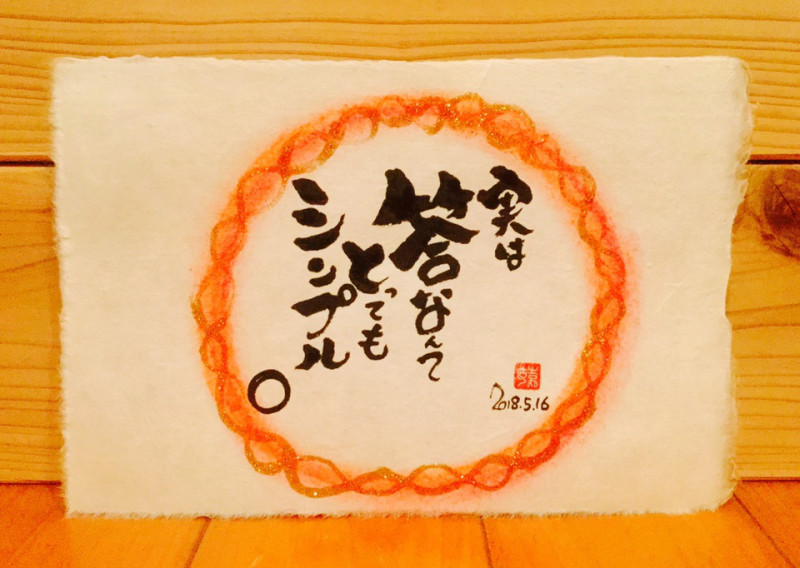 実は
答なんて
とっても
シンプル
。
2018.5.16